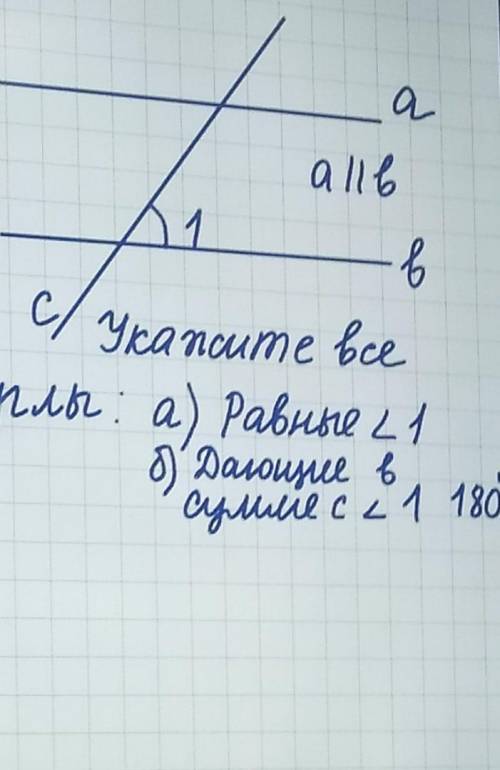 a
a || b
1
b
c
Укажите все
лы: а) Равные < 1
б) Дающие в
сумме с < 1 180